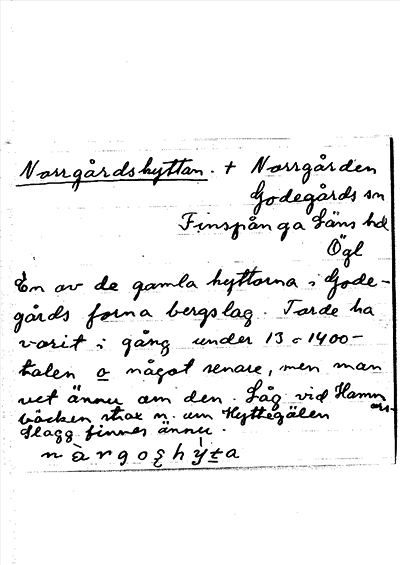 Norrgårdshyttan. + Norrgården
Godegårds sn
Finspånga Läns hd
Ögl
En av de gamla hyttorna i Gode-
gårds forna bergslag. Torde ha
varit i gång under 13 o 1400-
talen o något senare, men man
vet ännu om den. Låg vid Hamn
bäcken strax n. om Hyttegölen
Slagg finnes ännu.